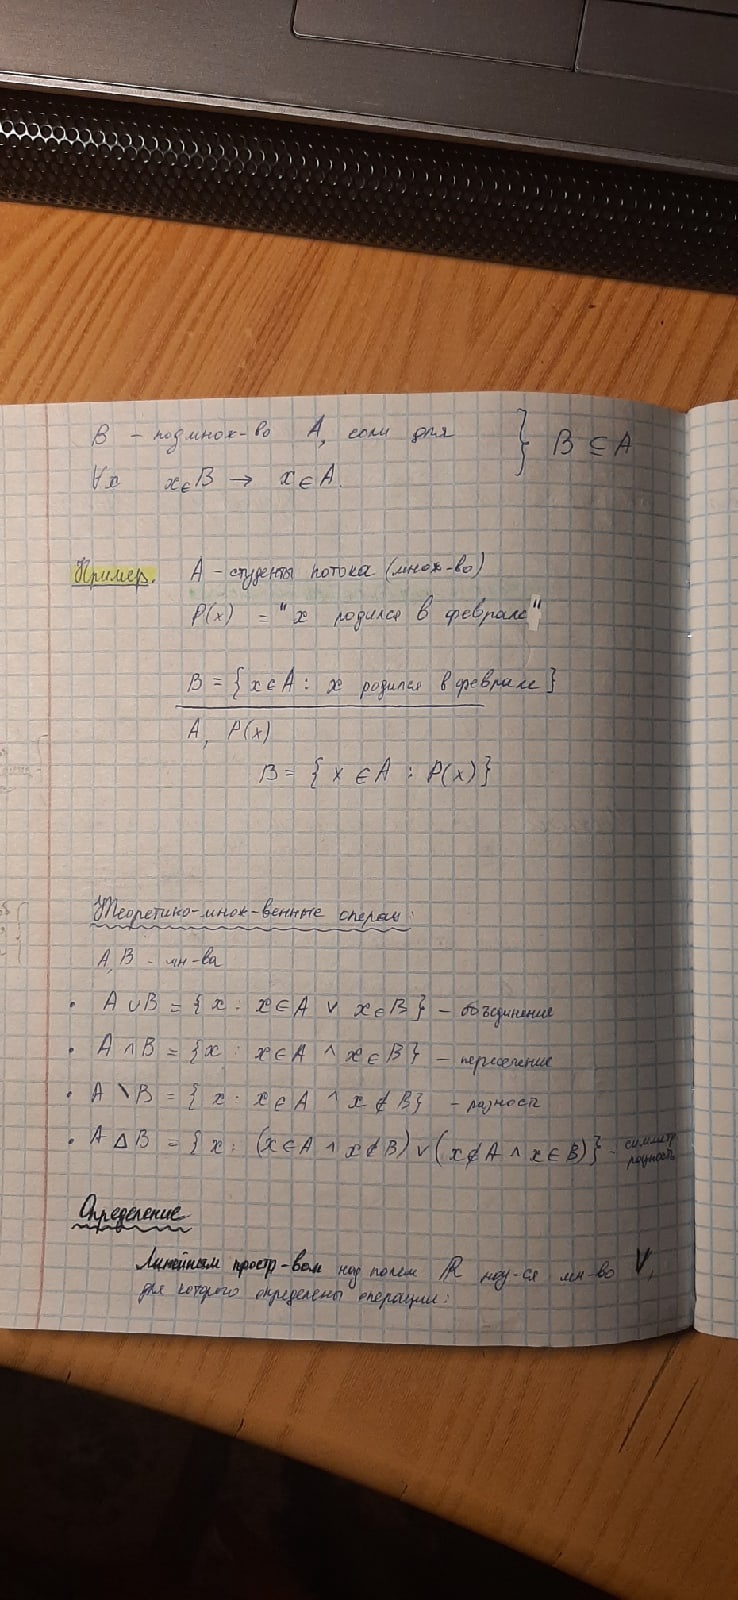 B – поднож-во A, если для } B ⊆ A
∀x x∈B → x∈A.
Пример. A – студенты потока (множ-во)
P(x) = "x родился в феврале"
B = {x∈A : x родился в феврале}
A, P(x)
B = {x ∈ A : P(x)}
Теоретико-множ-венные операц:
A, B – мн-ва
• A ∪ B = {x : x∈A ∨ x∈B} – объединение
• A ∩ B = {x : x∈A ∧ x∈B} – пересечение
• A \ B = {x : x∈A ∧ x∉B} – разность
• A △ B = {x : (x∈A ∧ x∉B) ∨ (x∉A ∧ x∈B)} – симметр разность
Определение
Линейным простр-вом над полем ℝ наз-ся мн-во V,
для которого определены операции: